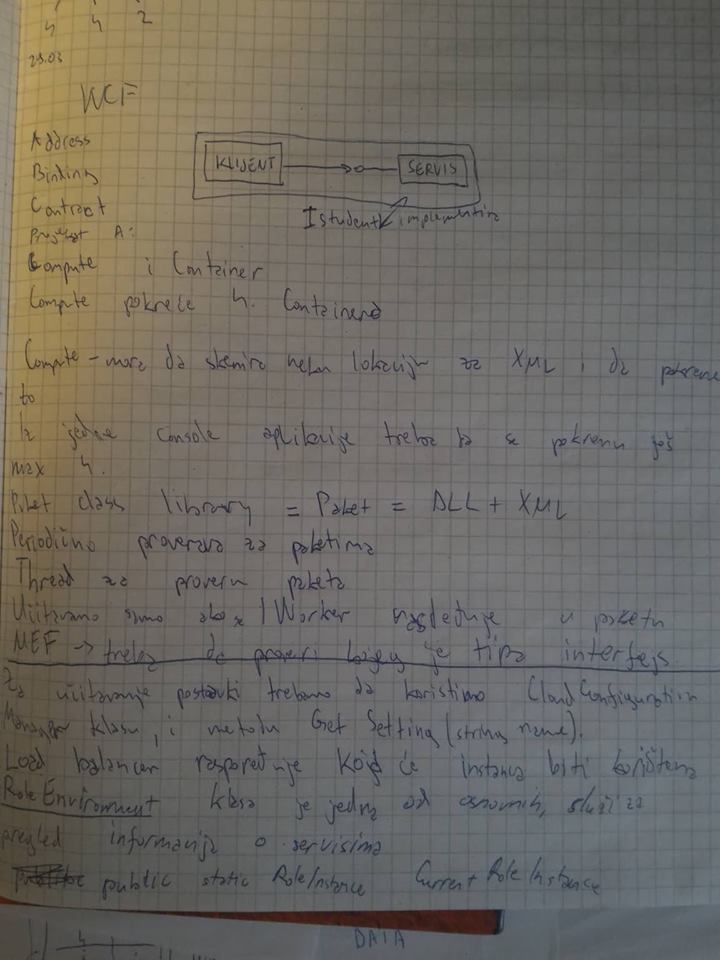 4 4 2
29.03
WCF
Address
Binding
Contract
KLIJENT
SERVIS
IStudent implementira
Projekat A:
Compute i Container
Compute pokreće 4. Containera
Compute - mora da skenira neku lokaciju za XML i da pokrene
to
Iz jedne console aplikacije treba da se pokrenu još
max 4.
Paket class library = Paket = DLL + XML
Periodično proverava za paketima
Thread za proveru paketa
Učitavamo samo ako IWorker nasleđuje u paketu
MEF → treba da proveri kojeg je tipa interfejs.
Za učitavanje postavki trebamo da koristimo CloudConfiguration
Manager klasu, i metodu Get Setting (string name).
Load balancer raspoređuje koja će instanca biti korištena
Role Enviroment klasa je jedna od osnovnih, služi za
pregled informacija o servisima
public static RoleInstance Current Role Instance
4
DATA